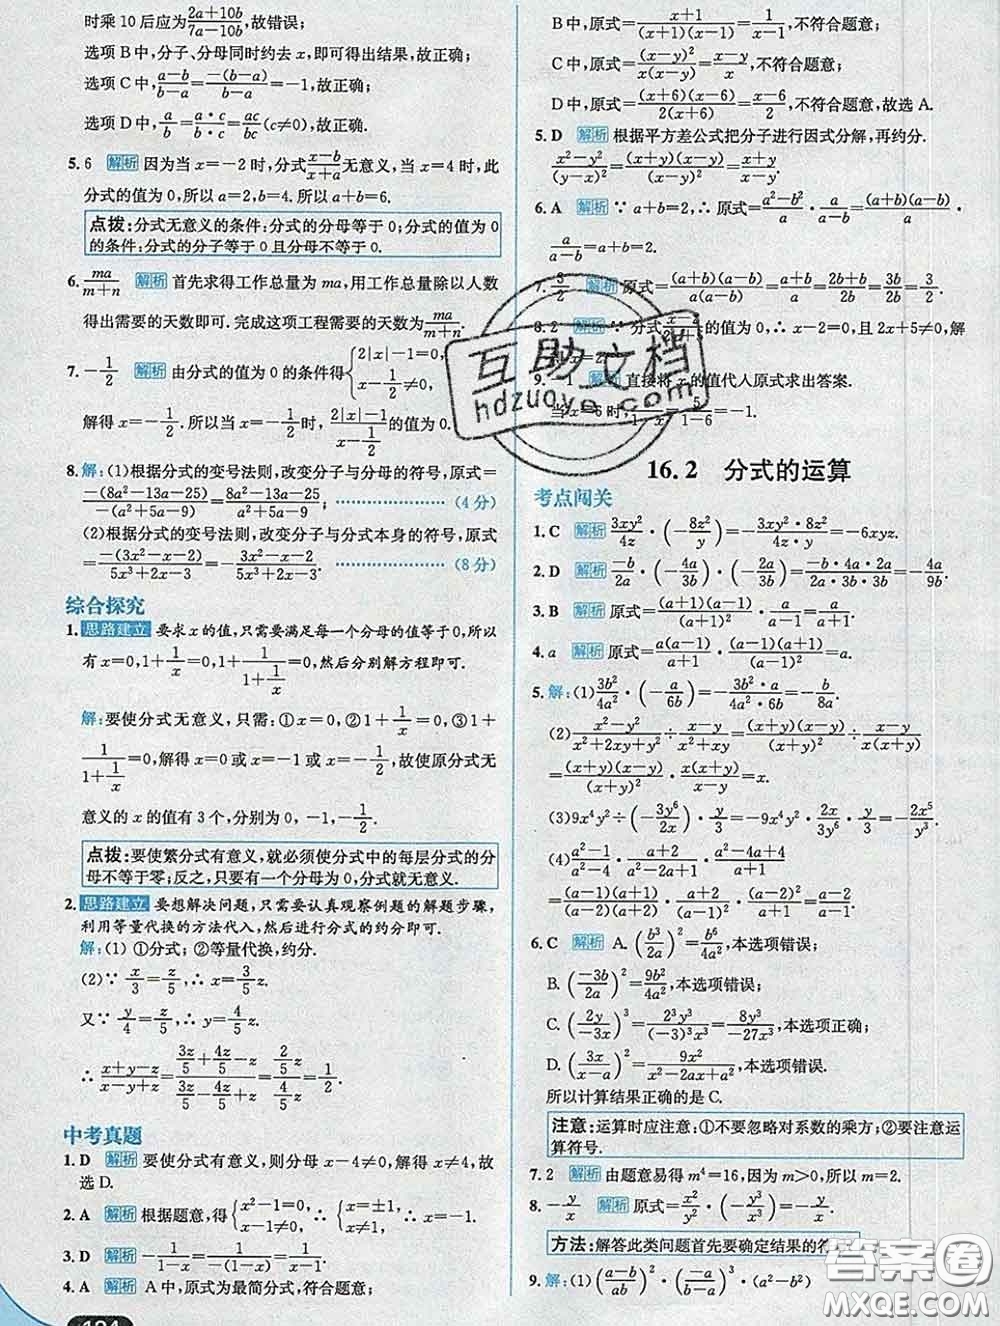 时乘 10 后应为(2a+10b)/(7a-10b),故错误;
选项 B 中,分子、分母同时约去 x,即可得出结果,故正确;
选项 C 中,(a-b)/(b-a)=-(b-a)/(b-a)=-1,故正确;
选项 D 中,a/b=(a·c)/(b·c)=ac/bc(c≠0),故正确.
5. 6 解析 因为当 x=-2 时,分式(x-b)/(x+a)无意义,当 x=4 时,此
分式的值为 0,所以 a=2,b=4. 所以 a+b=6.
点拨:分式无意义的条件:分式的分母等于 0;分式的值为 0
的条件:分式的分子等于 0 且分母不等于 0.
6. ma/(m+n) 解析 首先求得工作总量为 ma,用工作总量除以人数
得出需要的天数即可. 完成这项工程需要的天数为 ma/(m+n).
7. -1/2 解析 由分式的值为 0 的条件得{2|x|-1=0, x-1/2≠0,
解得 x=-1/2. 所以当 x=-1/2时,(2|x|-1)/(x-1/2)的值为 0.
8. 解:(1)根据分式的变号法则,改变分子与分母的符号,原式=
-(8a²-13a-25)/-(a²+5a-9)=(8a²-13a-25)/(a²+5a-9). (4 分)
(2)根据分式的变号法则,改变分子与分式本身的符号,原式
=-(3x²-x-2)/(5x³+2x-3)=-(3x²-x-2)/(5x³+2x-3). (8 分)
综合探究
1. 思路建立 要求 x 的值,只需要满足每一个分母的值等于 0,所以
有 x=0,1+1/x=0,1+1/(1+1/x)=0,然后分别解方程即可.
解:要使分式无意义,只需:①x=0,②1+1/x=0,③1+
1/(1+1/x)=0,解得 x=0 或 x=-1 或 x=-1/2,故使原分式无
意义的 x 的值有 3 个,分别为 0,-1,-1/2.
点拨:要使繁分式有意义,就必须使分式中的每层分式的分
母不等于零;反之,只要有一个分母为 0,分式就无意义.
2. 思路建立 要想解决问题,只需要认真观察例题的解题步骤,
利用等量代换的方法代入,然后进行分式的约分即可.
解:(1) ①分式;②等量代换,约分.
(2)∵ x/3=z/5,∴ x=3/5z.
又∵ y/4=z/5,∴ y=4/5z.
∴ (x+y-z)/(x-y+z)=(3z/5+4z/5-z)/(3z/5-4z/5+z)=(2/5z)/(4/5z)=1/2.
中考真题
1. D 解析 要使分式有意义,则分母 x-4≠0,解得 x≠4,故
选 D.
2. A 解析 根据题意,得{x²-1=0, x-1≠0,∴{x=±1, x≠1,∴ x=-1.
3. D 解析 -1/(1-x)=-1/-(x-1)=1/(x-1).
4. A 解析 A 中,原式为最简分式,符合题意;
B 中,原式=(x+1)/((x+1)(x-1))=1/(x-1),不符合题意;
C 中,原式=(x-y)²/(x(x-y))=(x-y)/x,不符合题意;
D 中,原式=(x+6)(x-6)/(2(x+6))=(x-6)/2,不符合题意,故选 A.
5. D 解析 根据平方差公式把分子进行因式分解,再约分.
(x²-y²)/(y-x)²=(x+y)(x-y)/(x-y)²=(x+y)/(x-y).
6. A 解析 ∵ a+b=2,∴ 原式=(a²-b²)/a·a/(a-b)=(a+b)(a-b)/a·
a/(a-b)=a+b=2.
7. 3/2 解析 原式=(a+b)(a-b)/(a(a-b))=(a+b)/a=(2b+b)/2b=3b/2b=3/2.
8. 2 解析 ∵ 分式 的值为 0,∴ x-2=0,且 2x+5≠0,解
得 x=2.
9. -1 解析 直接将 x 的值代人原式求出答案.
当 x=6 时,5/(1-x)=5/(1-6)=-1.
16.2 分式的运算
考点闯关
1. C 解析 3xy²/4z·(-8z²/y)=-(3xy²·8z²)/(4z·y)=-6xyz.
2. D 解析 -b/2a·(-4a/3b)·(-2a/3b)=(-b·4a·2a)/(2a·3b·3b)=-4a/9b.
3. B 解析 原式=(a+1)(a-1)/a·a/(a-1)=a+1.
4. a 解析 原式=a(a-1)/(a+1)·(a+1)(a-1)/(a-1)²=a.
5. 解:(1)3b²/4a²·(-a/6b)=-(3b²·a)/(4a²·6b)=-b/8a.
(2)(x²-y²)/(x²+2xy+y²)÷(x-y)/(x²+xy)=(x+y)(x-y)/(x+y)²÷(x-y)/(x(x+y))
=(x+y)(x-y)/(x+y)²·x(x+y)/(x-y)=x.
(3)9x⁴y²÷(-3y⁶/2x)·y/3=-9x⁴y²·2x/3y⁶·y/3=-2x⁵/y³.
(4)(a²-1)/(a²-4)÷(a+1)/(a-2)·(a²-4a+4)/(a²+2a)
=(a+1)(a-1)/((a+2)(a-2))·(a-2)/(a+1)·(a-2)²/(a(a+2))=(a-1)(a-2)²/(a(a+2)²).
6. C 解析 A. (b³/2a)²=b⁶/4a²,本选项错误;
B. (-3b/2a)²=9b²/4a²,本选项错误;
C. (2y/-3x)³=2³y³/((-3)³x³)=8y³/-27x³,本选项正确;
D. (3x/(x-a))²=9x²/(x²-2ax+a²),本选项错误.
所以计算结果正确的是 C.
注意:运算时应注意:①不要忽略对系数的乘方;②要注意运
算符号.
7. 2 解析 由题意易得 m⁴=16,因为 m>0,所以 m=2.
8. -y/x 解析 原式=x²/y²·(-y³/x³)=-y/x.
方法:解答此类问题首先要确定结果的符
9. 解:(1)((a-b)/ab)²·(-a/(b-a))³·(a²-b²)
互助文档
hdzuoye.com
答案圈
MXQE.COM